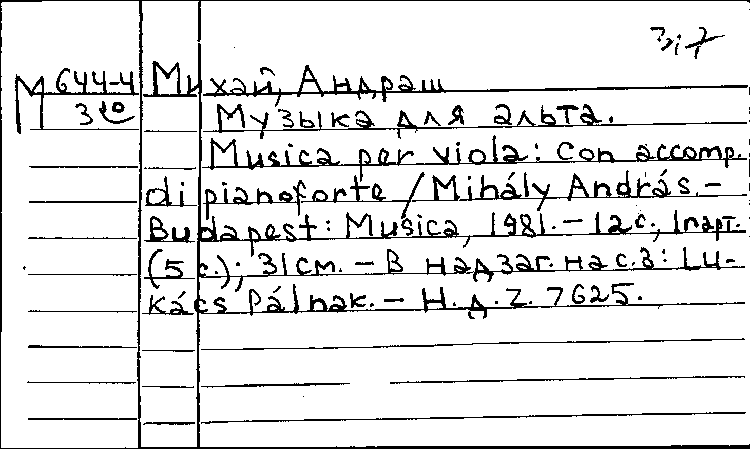 М 644-4 Михай, Андраш
3 10 Музыка для альта.
Musica per viola: Con accomp.
di pianoforte / Mihály András. –
Budapest: Musica, 1981. – 12 с., 1 парт.
(5 с.); 31 см. – В надзаг. на с. 3: Lu-
kács Pálnak. – Н. д. Z. 7625.